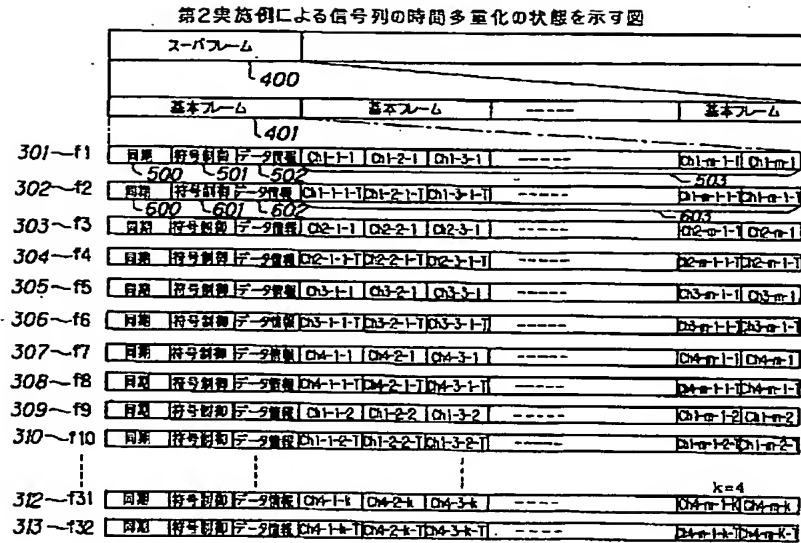 第2実施例による信号列の時間多重化の状態を示す図
スーパフレーム
400
基本フレーム 基本フレーム ----- 基本フレーム
401
301~f1 同期 符号制御 データ情報 Ch1-1-1 Ch1-2-1 Ch1-3-1 ----- Ch1-m-1-1 Ch1-m-1
500 501 502 503
302~f2 同期 符号制御 データ情報 Ch1-1-1-T Ch1-2-1-T Ch1-3-1-T ----- Ch1-m-1-1-T Ch1-m-1-T
600 601 602 603
303~f3 同期 符号制御 データ情報 Ch2-1-1 Ch2-2-1 Ch2-3-1 ----- Ch2-m-1-1 Ch2-m-1
304~f4 同期 符号制御 データ情報 Ch2-1-1-T Ch2-2-1-T Ch2-3-1-T ----- Ch2-m-1-1-T Ch2-m-1-T
305~f5 同期 符号制御 データ情報 Ch3-1-1 Ch3-2-1 Ch3-3-1 ----- Ch3-m-1-1 Ch3-m-1
306~f6 同期 符号制御 データ情報 Ch3-1-1-T Ch3-2-1-T Ch3-3-1-T ----- Ch3-m-1-1-T Ch3-m-1-T
307~f7 同期 符号制御 データ情報 Ch4-1-1 Ch4-2-1 Ch4-3-1 ----- Ch4-m-1-1 Ch4-m-1
308~f8 同期 符号制御 データ情報 Ch4-1-1-T Ch4-2-1-T Ch4-3-1-T ----- Ch4-m-1-1-T Ch4-m-1-T
309~f9 同期 符号制御 データ情報 Ch1-1-2 Ch1-2-2 Ch1-3-2 ----- Ch1-m-1-2 Ch1-m-2
310~f10 同期 符号制御 データ情報 Ch1-1-2-T Ch1-2-2-T Ch1-3-2-T ----- Ch1-m-1-2-T Ch1-m-2-T
k=4
312~f31 同期 符号制御 データ情報 Ch4-1-k Ch4-2-k Ch4-3-k ----- Ch4-m-1-K Ch4-m-k
313~f32 同期 符号制御 データ情報 Ch4-1-k-T Ch4-2-k-T Ch4-3-k-T ----- Ch4-m-1-k-T Ch4-m-K-T